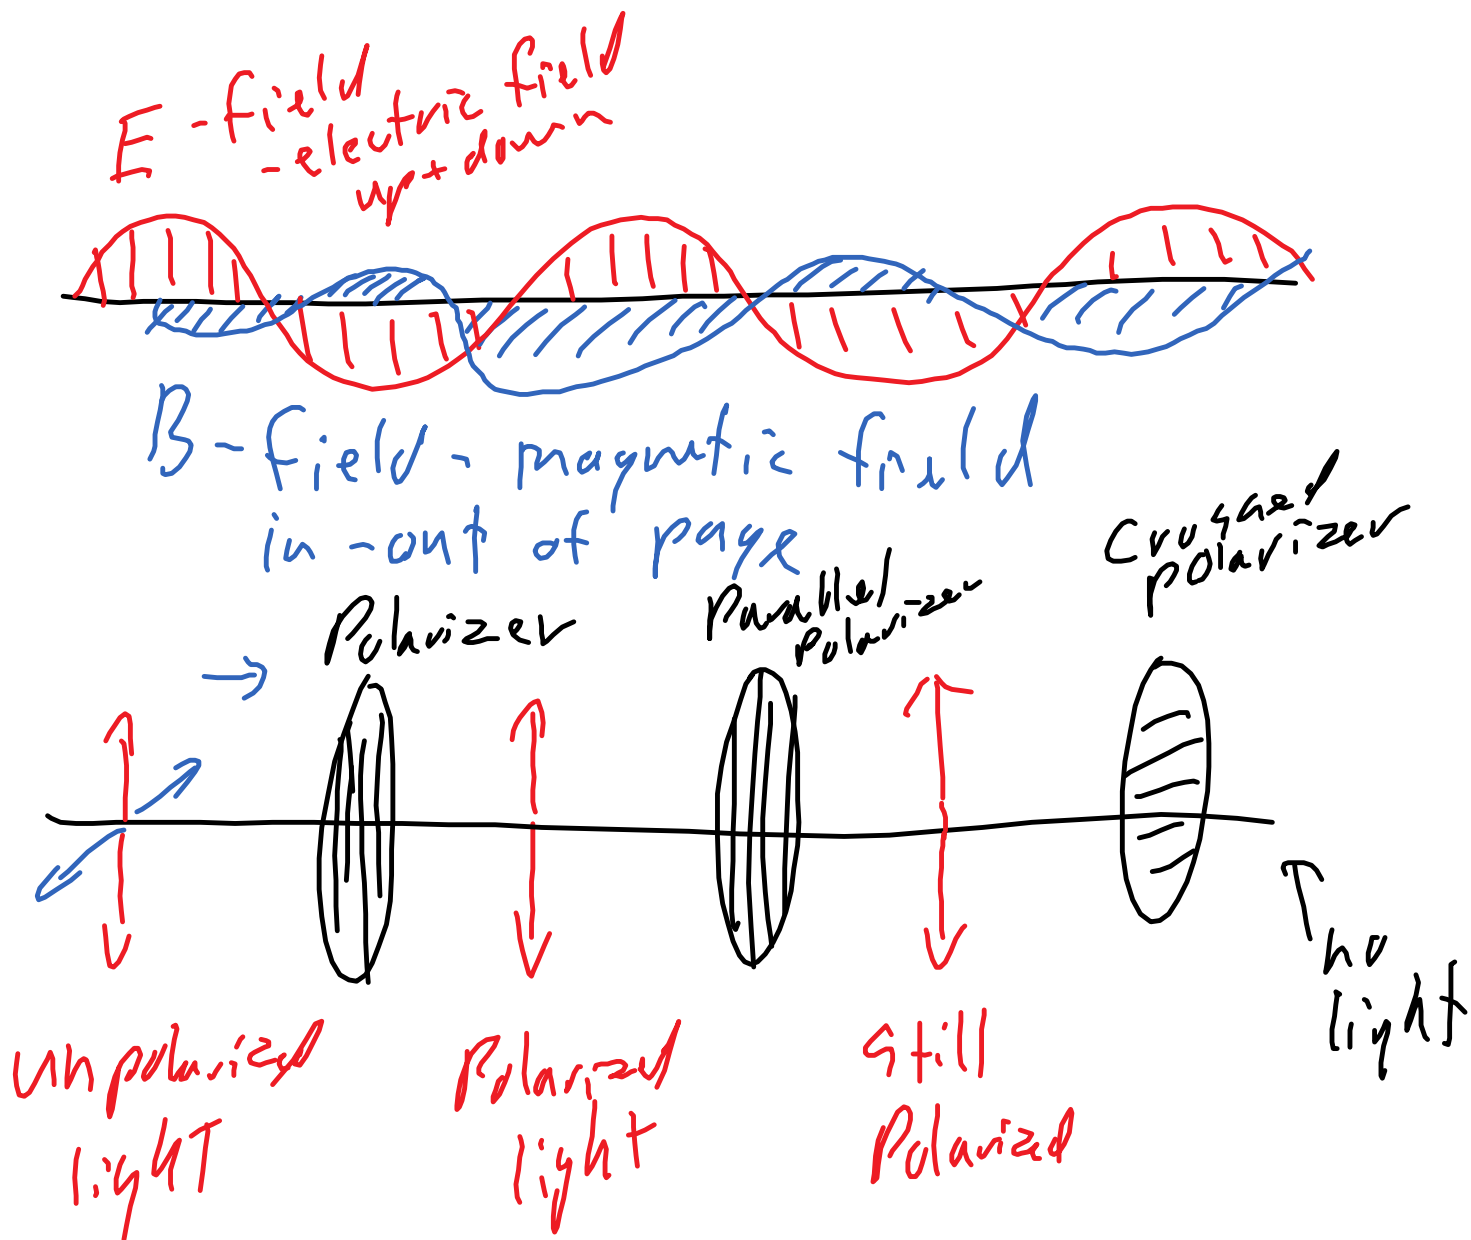 E - field
- electric field
up + down
B - field - magnetic field
in - out of page
Polarizer
Parallel
polarizer
Crossed
polarizer
unpolarized
light
Polarized
light
still
Polarized
no
light